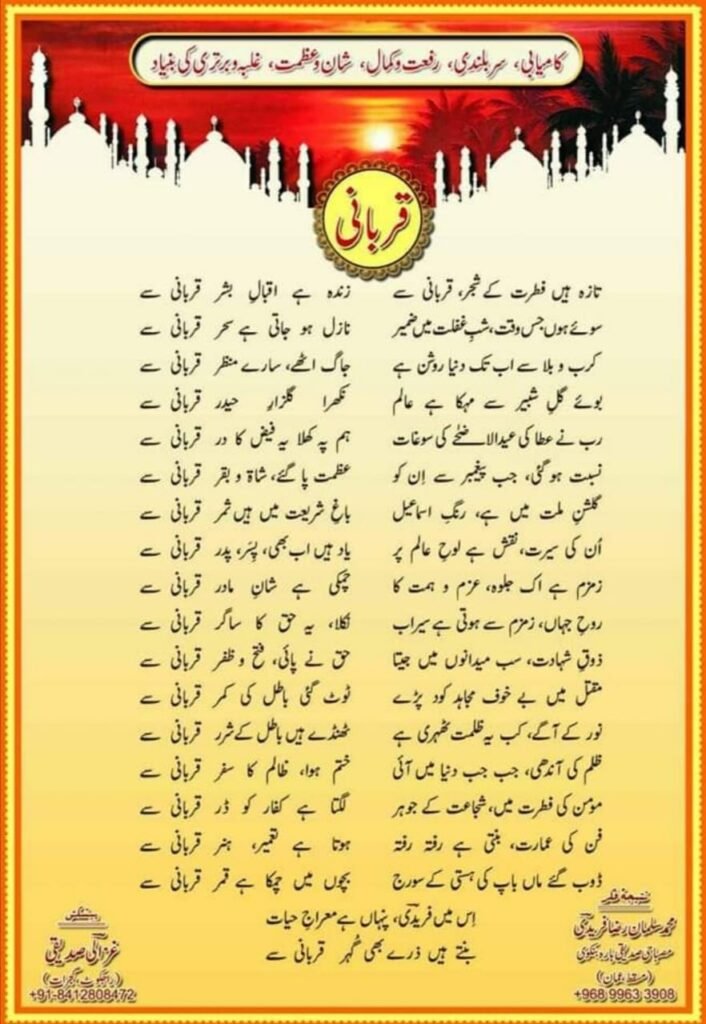 کامیابی، سربلندی، رفعت و کمال، شان و عظمت، غلبہ و برتری کی بنیاد
قربانی
تازہ ہیں فطرت کے شجر، قربانی سے زندہ ہے اقبالِ بشر قربانی سے
سوئے ہوں جس وقت، شبِ غفلت میں ضمیر نازل ہو جاتی ہے سحر قربانی سے
کرب و بلا سے اب تک دنیا روشن ہے جاگ اٹھے، سارے منظر قربانی سے
بوئے گلِ شبیر سے مہکا ہے عالم نکھرا گلزارِ حیدر قربانی سے
رب نے عطا کی عیدالاضحٰے کی سوغات ہم پہ کھلا یہ فیض کا در قربانی سے
نسبت ہو گئی، جب پیغمبر سے اِن کو عظمت پا گئے، شاۃ و بقر قربانی سے
گلشنِ ملت میں ہے، رنگِ اسماعیل باغِ شریعت میں ہیں ثمر قربانی سے
اُن کی سیرت، نقش ہے لوحِ عالم پر یاد ہیں اب بھی، پِسَر، پدر قربانی سے
زمزم ہے اک جلوہ، عزم و ہمت کا چمکی ہے شانِ مادر قربانی سے
روحِ جہاں، زمزم سے ہوتی ہے سیراب نکلا، یہ حق کا ساگر قربانی سے
ذوقِ شہادت، سب میدانوں میں جیتا حق نے پائی، فتح و ظفر قربانی سے
مقتل میں بے خوف مجاہد کود پڑے ٹوٹ گئی باطل کی کمر قربانی سے
نور کے آگے، کب یہ ظلمت ٹھہری ہے ٹھنڈے ہیں باطل کے شرر قربانی سے
ظلم کی آندھی، جب جب دنیا میں آئی ختم ہوا، ظالم کا سفر قربانی سے
مومن کی فطرت میں، شجاعت کے جوہر لگتا ہے کفار کو ڈر قربانی سے
فن کی عمارت، بنتی ہے رفتہ رفتہ ہوتا ہے تعمیر، ہنر قربانی سے
ڈوب گئے ماں باپ کی ہستی کے سورج بچوں میں چمکا ہے قمر قربانی سے
اِس میں فریدؔی، پنہاں ہے معراجِ حیات
بنتے ہیں ذرے بھی گُہر قربانی سے
نتیجۂ فکر
محمد سلمان رضا فریدؔی
صدیقی مصباحی بارہ بنکوی
(مسقط، عمان)
+968 9963 3908
غزالی صدیقی
+91-8412808472